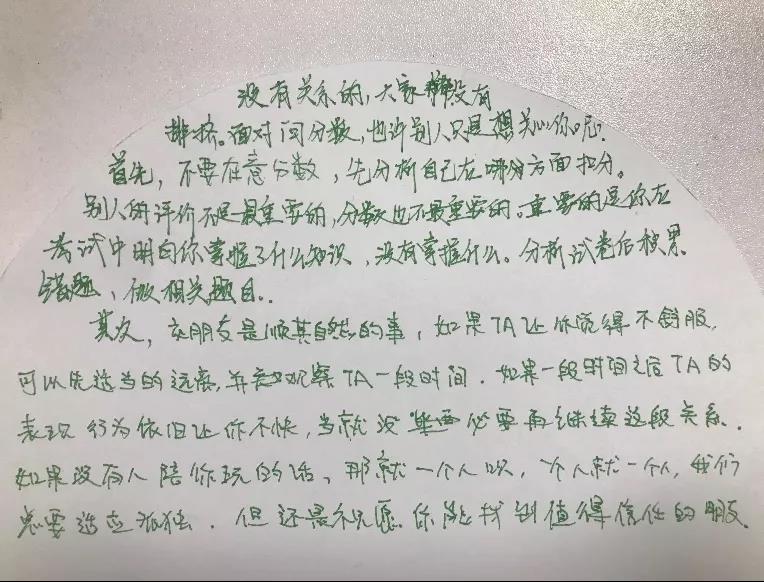 没有关系的，大家都没有
排挤。面对问分数，也许别人只是想关心你呢。
首先，不要在意分数，先分析自己在哪部分方面扣分。
别人的评价不是最重要的，分数也不最重要的。重要的是你在
考试中明白你掌握了什么知识，没有掌握什么。分析试卷后积累
错题，做相关题目..
其次，交朋友是顺其自然的事，如果TA让你觉得不舒服，
可以先适当的远离，并去观察TA一段时间．如果一段时间之后TA的
表现行为依旧让你不快，当就没 必要再继续这段关系．
如果没有人陪你玩的话，那就一个人呗，一个人就一个人，我们
总要适应孤独．但还是祝愿你能找到值得信任的朋友．